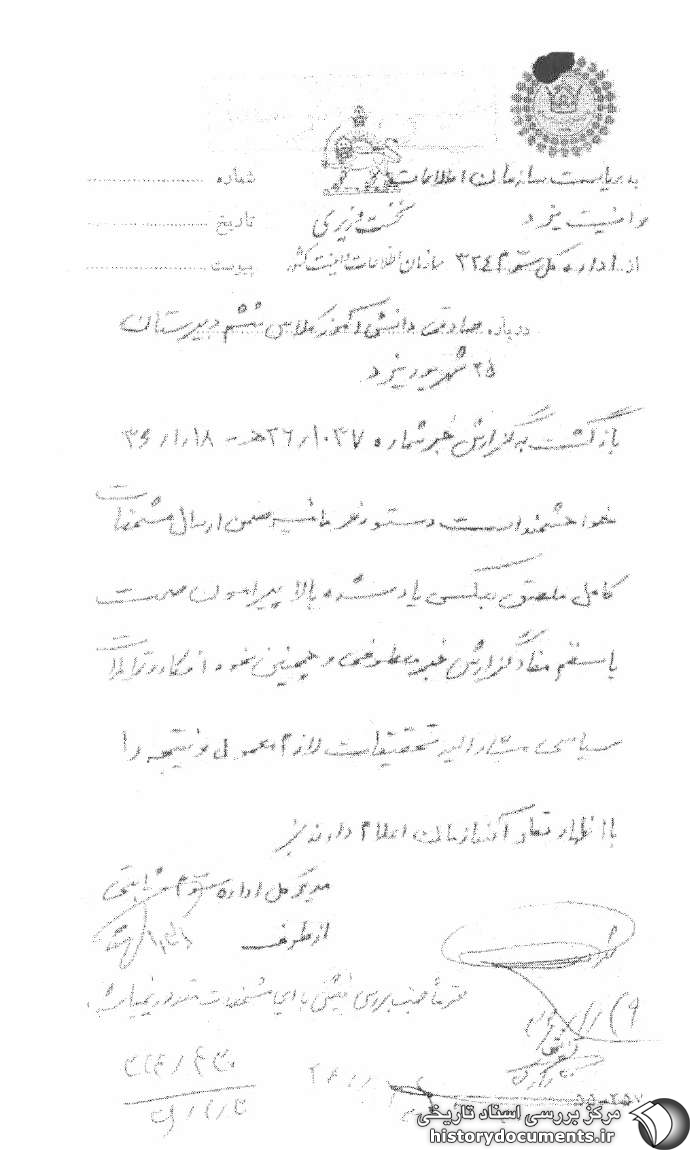 به ریاست سازمان اطلاعات
و امنیت یزد
نخست وزیری
از اداره کل سوم ۳۲۴ سازمان اطلاعات و امنیت کشور
شماره
تاریخ
پیوست
درباره صادقی دانش آموز کلاس ششم دبیرستان
۲۵ شهریور یزد
بازگشت به گزارش خبر شماره ۲۶/۱۰۳۷ هـ - ۳۶/۱/۱۸
خواهشمند است دستور فرمائید ضمن ارسال مشخصات
کامل ملصق بعکس یاد شده بالا پیرامون صحت
یا سقم مفاد گزارش خبر معطوفی و همچنین نحوه افکار و تمایلات
سیاسی مشارالیه تحقیقات لازم معمول و نتیجه را
با اظهار نظر آن سازمان اعلام دارند
مدیر کل اداره سوم ثابتی
از طرف
بررسی با این مشخصات
مرکز بررسی اسناد تاریخی
historydocuments.ir